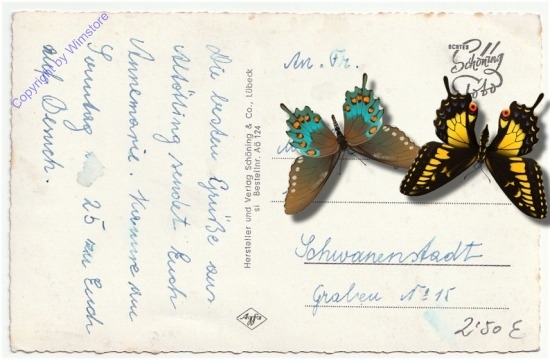 Die besten Grüße aus
Altötting sendet Euch
Annemarie. Komme am
Sonntag 25 zu Euch
auf Besuch.
Hersteller und Verlag Schöning & Co., Lübeck
si Bestellnr. Aö 124
Agfa
ECHTES
Schöning
Foto
An. Fr.
Schwanenstadt
Graben No 15
2'50 €
Copyright by Wimstore